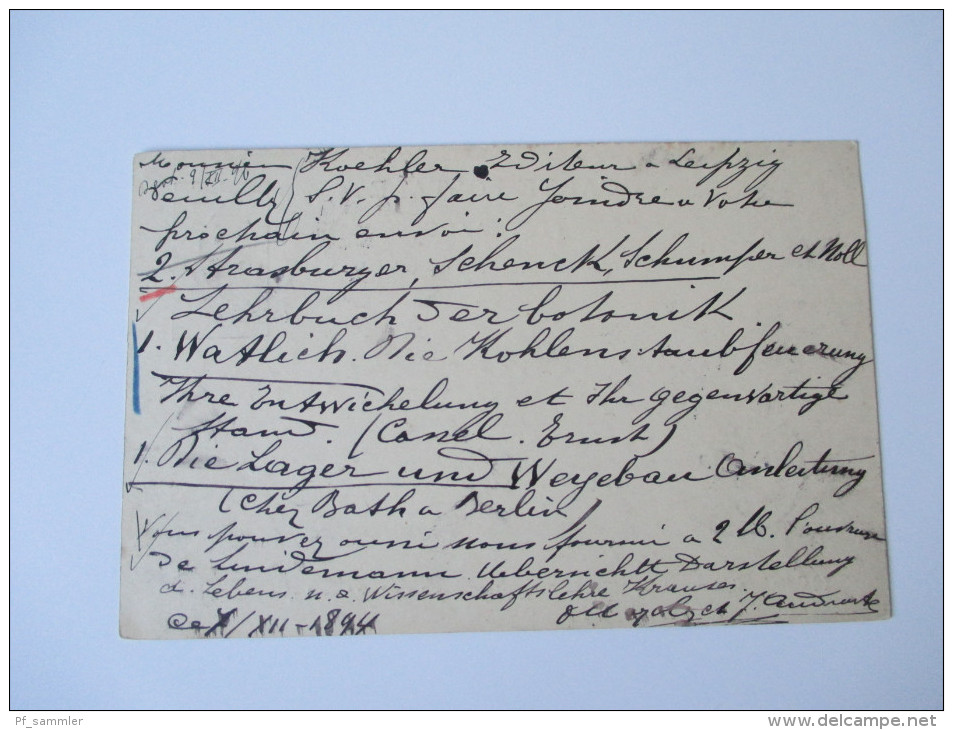 Monsieur Koehler Editeur a Leipzig
Veuillz S. V. p. faire Joindre a Votre
prochain envoi:
2. Strasburger, Schenck, Schumper et Noll
Lehrbuch der botanik
1. Watlich. Die Kohlenstaubfeuerung
Ihre Entwickelung et Ihr gegenwartige
stand. (Cassel. Ernst)
1. Die Lager und Wegebau Anleitung
(chez Bath a Berlin)
Vous pouvez aussi nous fournir a 2 M.
de Lindemann Uebersichtt Darstellung
d. Lebens u. a. Wissenschaftslehre Krauses.
Ce X/XII-1894
Pf_sammler
www.delcampe.net